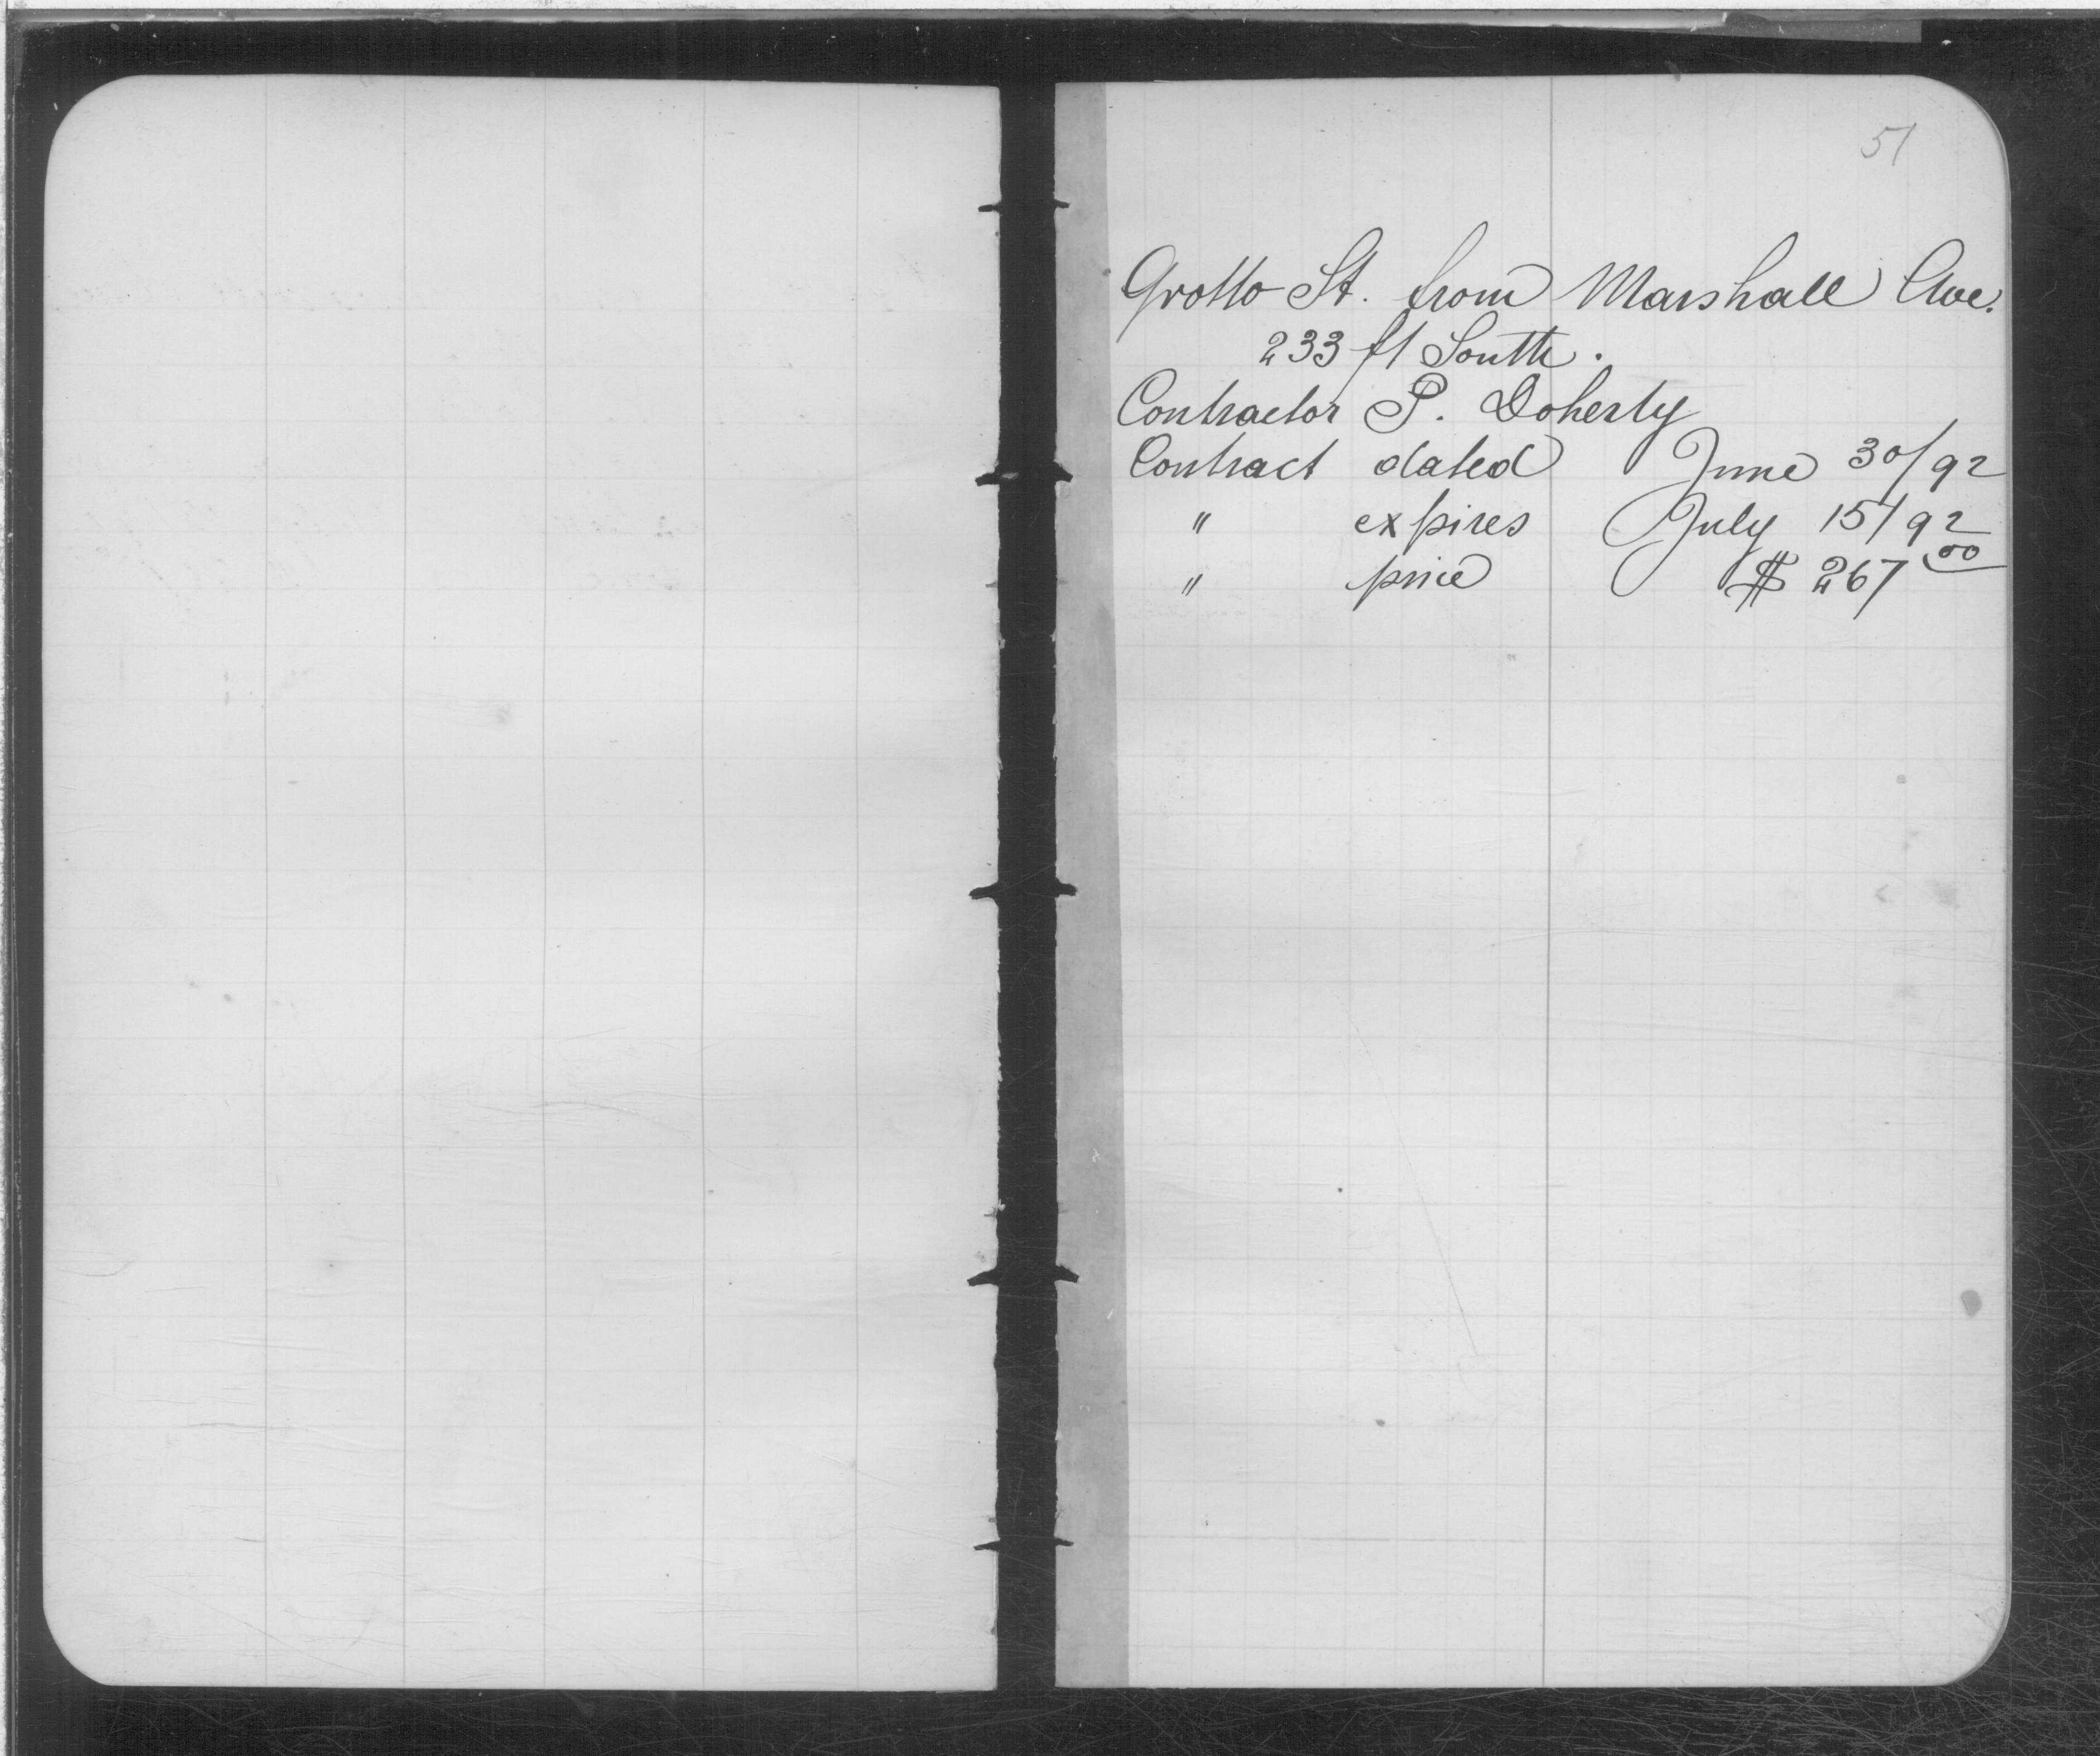 51
Grotto St. from Marshall Ave.
233 ft South.
Contractor P. Doherty
Contract dated June 30/92
" expires July 15/92
" price $ 267 00